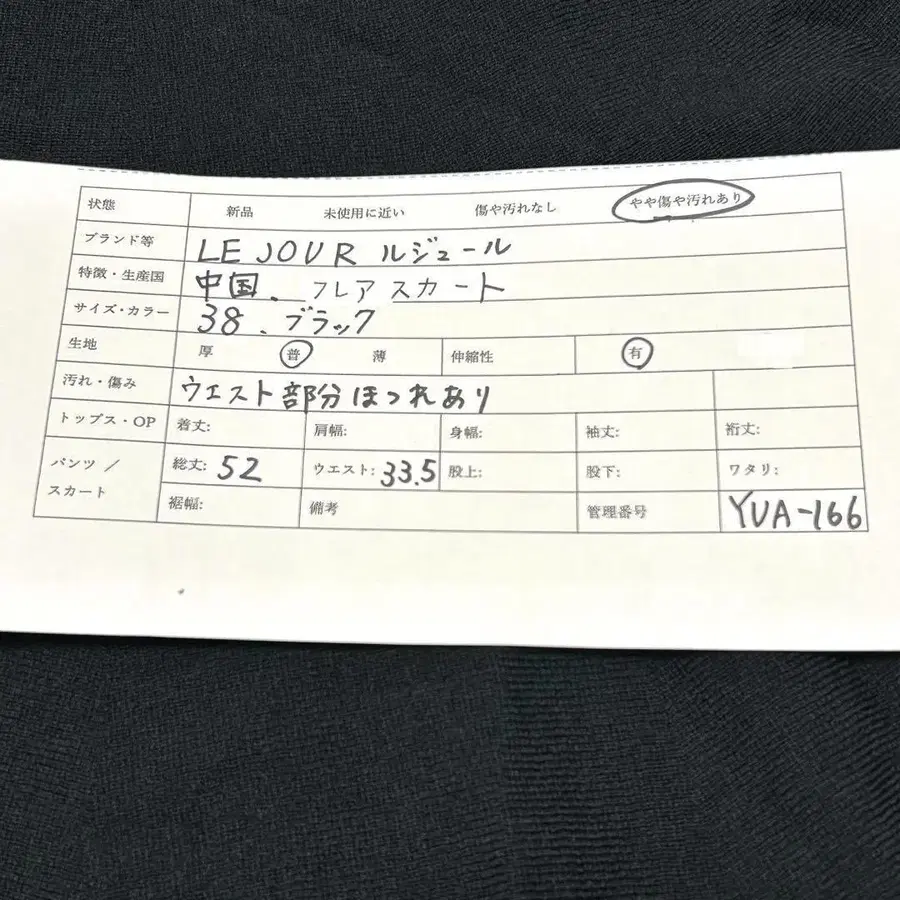 状態 新品 未使用に近い 傷や汚れなし やや傷や汚れあり
ブランド等 LE JOUR ルジュール
特徴・生産国 中国、フレアスカート
サイズ・カラー 38、ブラック
生地 厚 普 薄 伸縮性 有
汚れ・傷み ウエスト部分ほつれあり
トップス・OP 着丈: 肩幅: 身幅: 袖丈: 裄丈:
パンツ／スカート 総丈: 52 ウエスト: 33.5 股上: 股下: ワタリ:
裾幅: 備考 管理番号 YUA-166